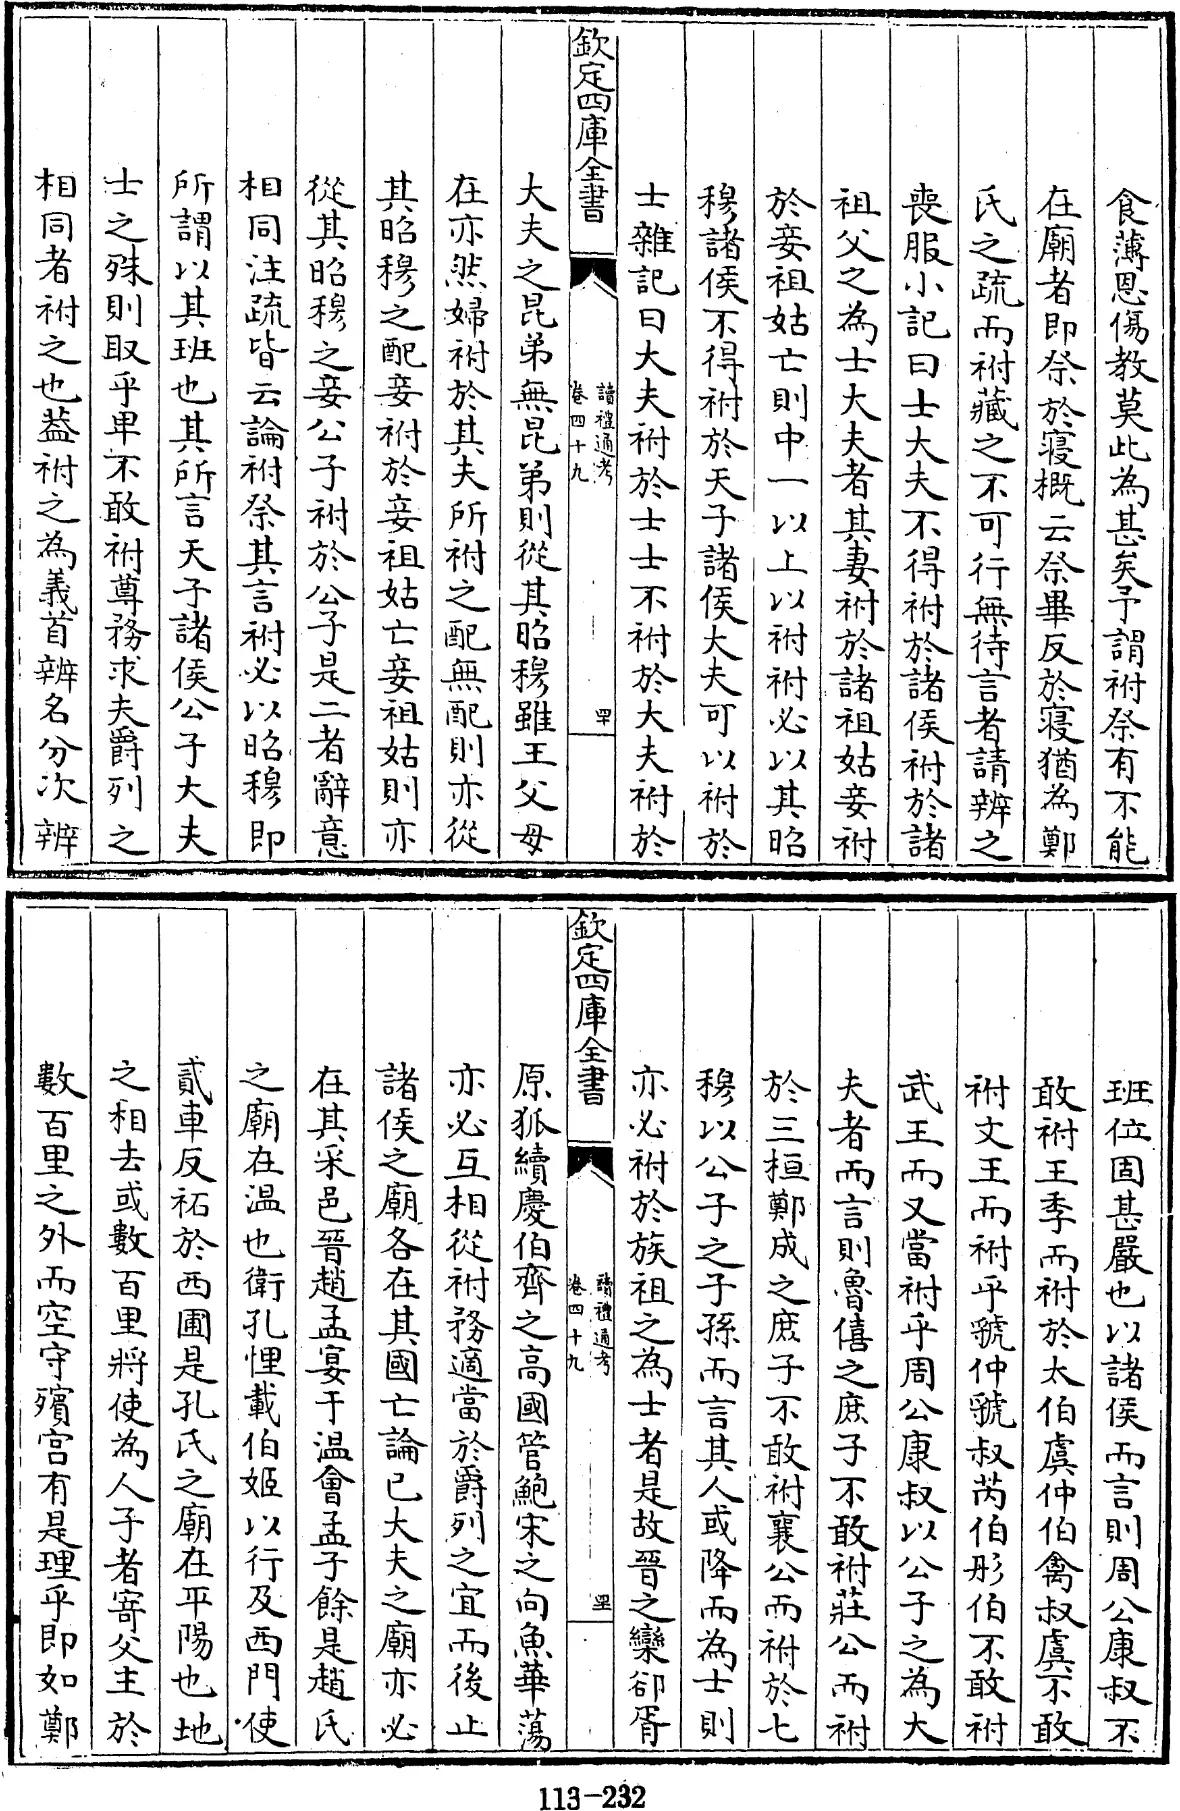 食薄恩傷教莫此為甚矣予謂祔祭有不能
在廟者即祭於寢概云祭畢反於寢猶為鄭
氏之疏而祔藏之不可行無待言者請辨之
喪服小記曰士大夫不得祔於諸侯祔於諸
祖父之為士大夫者其妻祔於諸祖姑妾祔
於妾祖姑亡則中一以上以祔祔必以其昭
穆諸侯不得祔於天子諸侯大夫可以祔於
士雜記曰大夫祔於士士不祔於大夫祔於
欽定四庫全書
讀禮通考
卷四十九
罕
大夫之昆弟無昆弟則從其昭穆雖王父母
在亦然婦祔於其夫所祔之配無配則亦從
其昭穆之配妾祔於妾祖姑亡妾祖姑則亦
從其昭穆之妾公子祔於公子是二者辭意
相同注疏皆云論祔祭其言祔必以昭穆即
所謂以其班也其所言天子諸侯公子大夫
士之殊則取乎卑不敢祔尊務求夫爵列之
相同者祔之也葢祔之為義首辨名分次辨
班位固甚嚴也以諸侯而言則周公康叔不
敢祔王季而祔於太伯虞仲伯禽叔虞不敢
祔文王而祔乎虢仲虢叔芮伯彤伯不敢祔
武王而又當祔乎周公康叔以公子之為大
夫者而言則魯僖之庶子不敢祔莊公而祔
於三桓鄭成之庶子不敢祔襄公而祔於七
穆以公子之子孫而言其人或降而為士則
亦必祔於族祖之為士者是故晉之欒郤胥
欽定四庫全書
讀禮通考
卷四十九
罜
原狐續慶伯齊之高國管鮑宋之向魚華蕩
亦必互相從祔務適當於爵列之宜而後止
諸侯之廟各在其國亡論已大夫之廟亦必
在其采邑晉趙孟宴于溫會孟子餘是趙氏
之廟在溫也衛孔悝載伯姬以行及西門使
貳車反祏於西圃是孔氏之廟在平陽也地
之相去或數百里將使為人子者寄父主於
數百里之外而空守殯宮有是理乎即如鄭
113-232